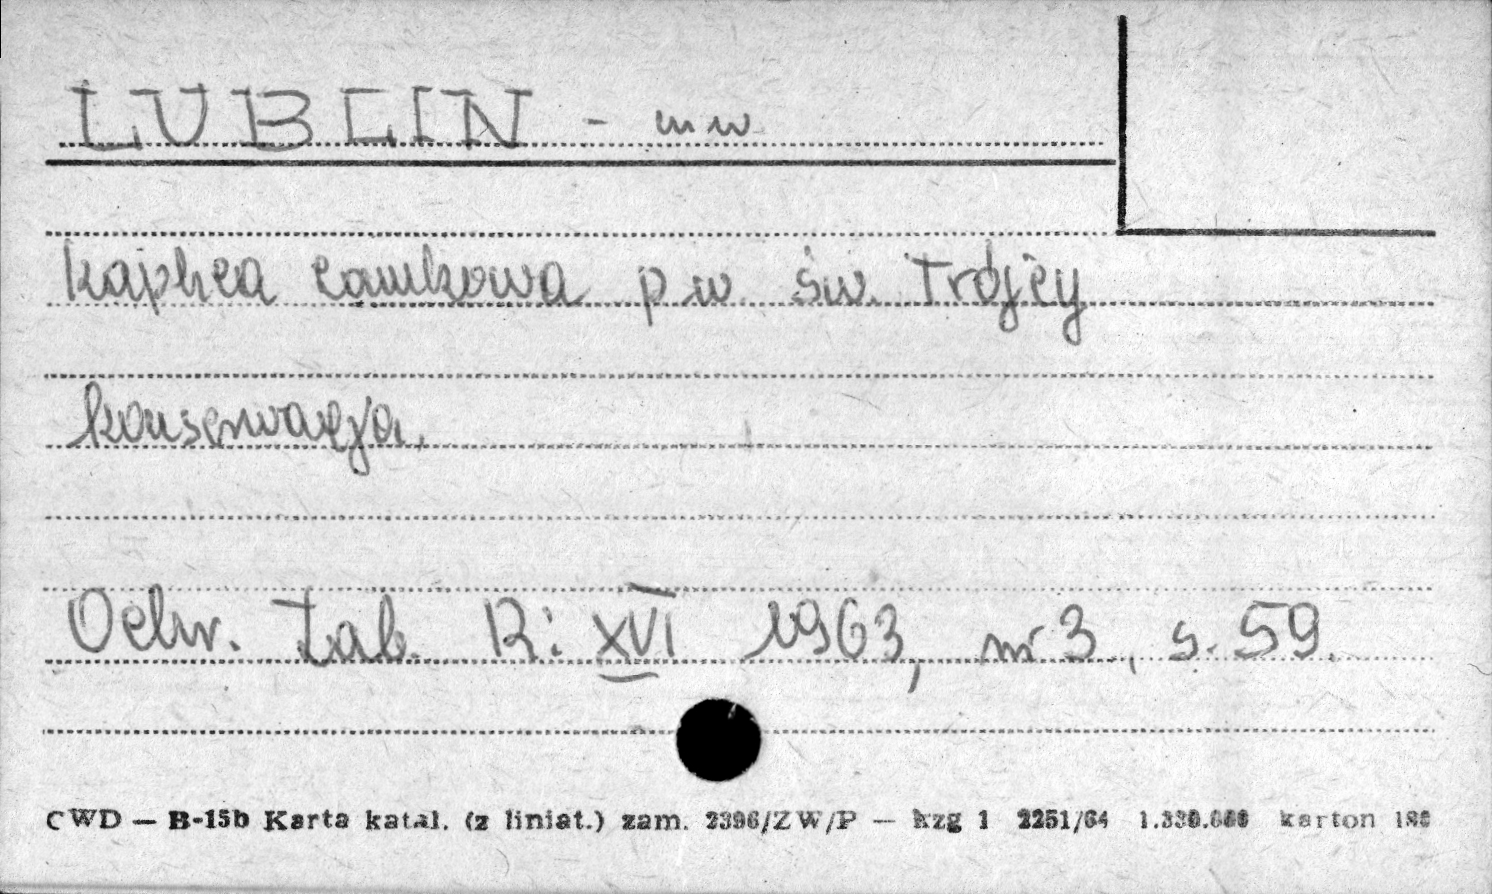 LUBLIN - mw
kaplica zamkowa p.w. św. Trójcy
konserwacja.
Ochr. Zab. R: XVI 1963, nr 3, s. 59.
CWD — B-15b Karta katal. (z liniat.) zam. 2396/ZW/P — kzg 1 2251/64 karton